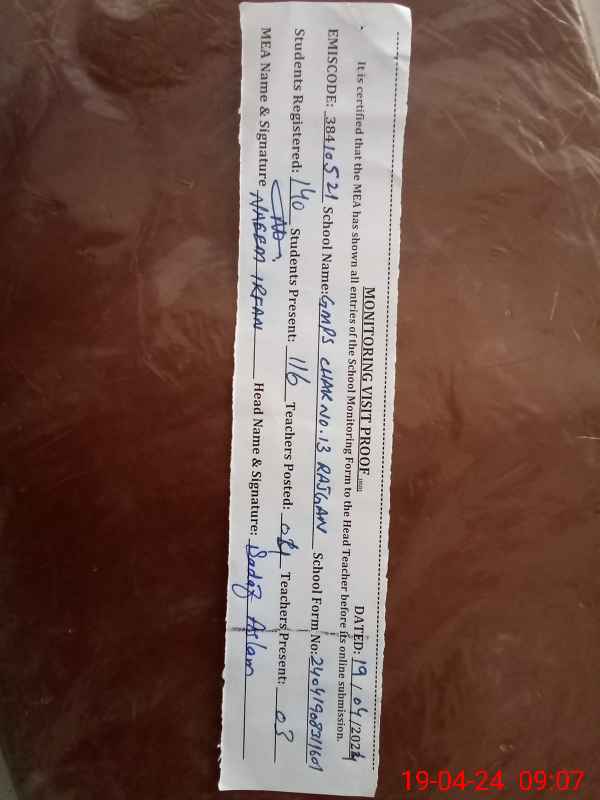 MONITORING VISIT PROOF
DATED: 19/04/2024
It is certified that the MEA has shown all entries of the School Monitoring Form to the Head Teacher before its online submission.
EMISCODE: 38410521 School Name: GMPS CHAK NO. 13 RAJGAN School Form No:
Students Registered: 140 Students Present: 116 Teachers Posted: 04 Teachers Present: 03
MEA Name & Signature NAEEM IRFAN Head Name & Signature: Sadaf Aslam
19-04-24 09:07